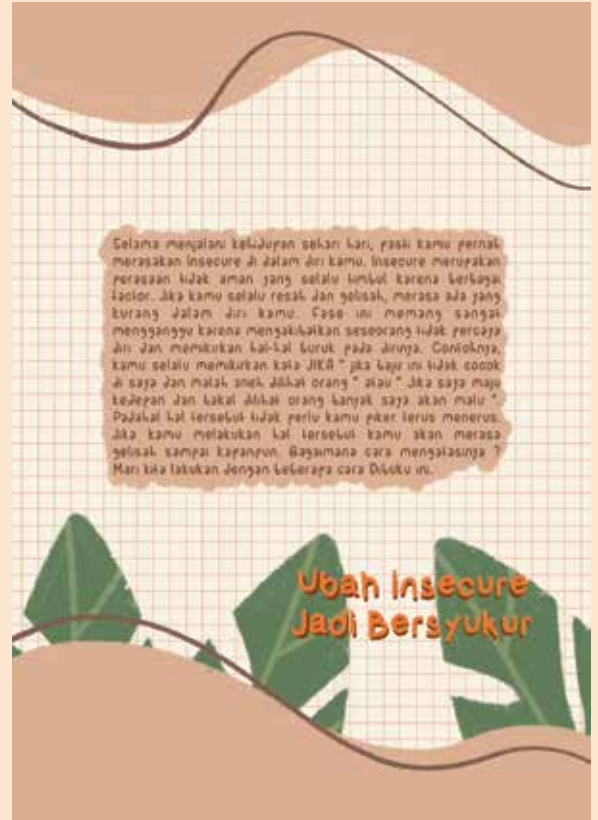 Selama menjalani kehidupan sehari hari, pasti kamu pernah
merasakan Insecure di dalam diri kamu. Insecure merupakan
perasaan tidak aman yang selalu timbul karena berbagai
factor. Jika kamu selalu resah dan gelisah, merasa ada yang
kurang dalam diri kamu. Fase ini memang sangat
mengganggu karena mengakibatkan seseorang tidak percaya
diri dan memikirkan hal-hal buruk pada dirinya. Contohnya,
kamu selalu memikirkan kata JIKA " jika baju ini tidak cocok
di saya dan malah aneh dilihat orang " atau " Jika saya maju
kedepan dan bakal dilihat orang banyak saya akan malu ".
Padahal hal tersebut tidak perlu kamu piker terus menerus.
Jika kamu melakukan hal tersebut kamu akan merasa
gelisah sampai kapanpun. Bagaimana cara mengatasinya ?
Mari kita lakukan dengan beberapa cara Dibuku ini.
Ubah insecure
Jadi Bersyukur